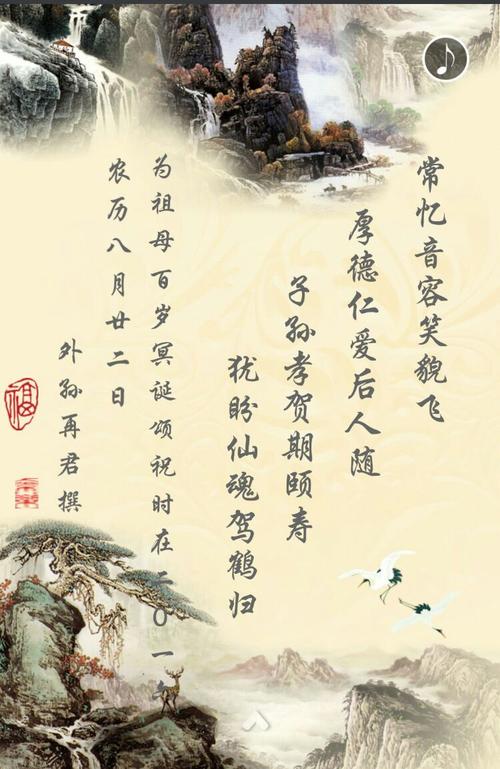 常忆音容笑貌飞
厚德仁爱后人随
子孙孝贺期颐寿
犹盼仙魂驾鹤归
为祖母百岁冥诞颂祝时在二0一
农历八月廿二日
外孙再君撰
福